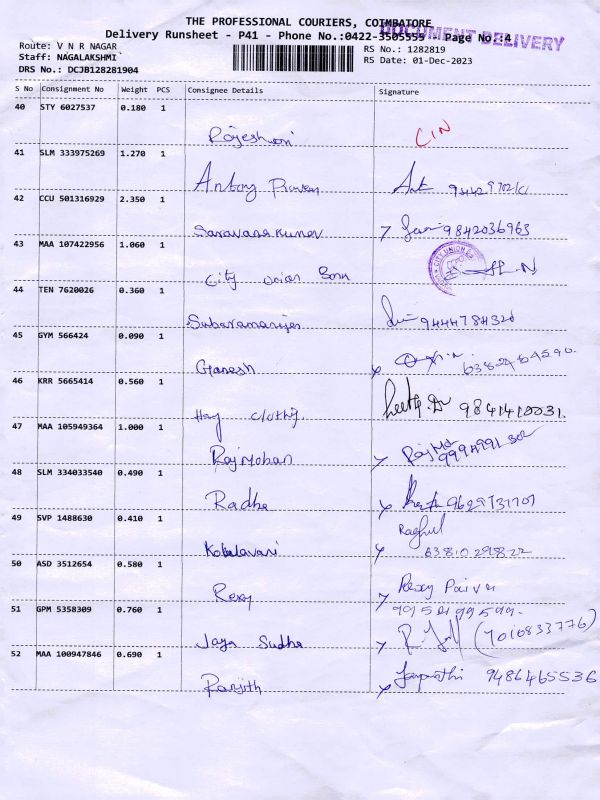 THE PROFESSIONAL COURIERS, COIMBATORE
DOCUMENT DELIVERY
Delivery Runsheet - P41 - Phone No.:0422-3505555 - Page No.:4
Route: V N R NAGAR
RS No.: 1282819
Staff: NAGALAKSHMI
RS Date: 01-Dec-2023
DRS No.: DCJB128281904
S No Consignment No Weight PCS Consignee Details Signature
40 STY 6027537 0.180 1
Rajeshwari CIN
41 SLM 333975269 1.270 1
Antony Praveen
42 CCU 501316929 2.350 1
Saravana Kumar 9842036963
43 MAA 107422956 1.060 1
CITY UNION
City Union Bank
44 TEN 7620026 0.360 1
9444784320
45 GYM 566424 0.090 1
Ganesh
46 KRR 5665414 0.560 1
Hay Clothing 9841410031.
47 MAA 105949364 1.000 1
Rajmohan
48 SLM 334033540 0.490 1
Radha
49 SVP 1488630 0.410 1
Raghul
Kokilavani 6381029822
50 ASD 3512654 0.580 1
Rexy Rexy
51 GPM 5358309 0.760 1
Jaya Sudha (7010833776)
52 MAA 100947846 0.690 1
Ranjith 9486465536